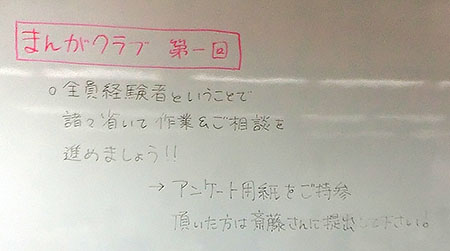 まんがクラブ 第一回
○全員経験者ということで
諸々省いて作業&ご相談を
進めましょう!!
→ アンケート用紙をご持参
頂いた方は斎藤さんに提出して下さい。